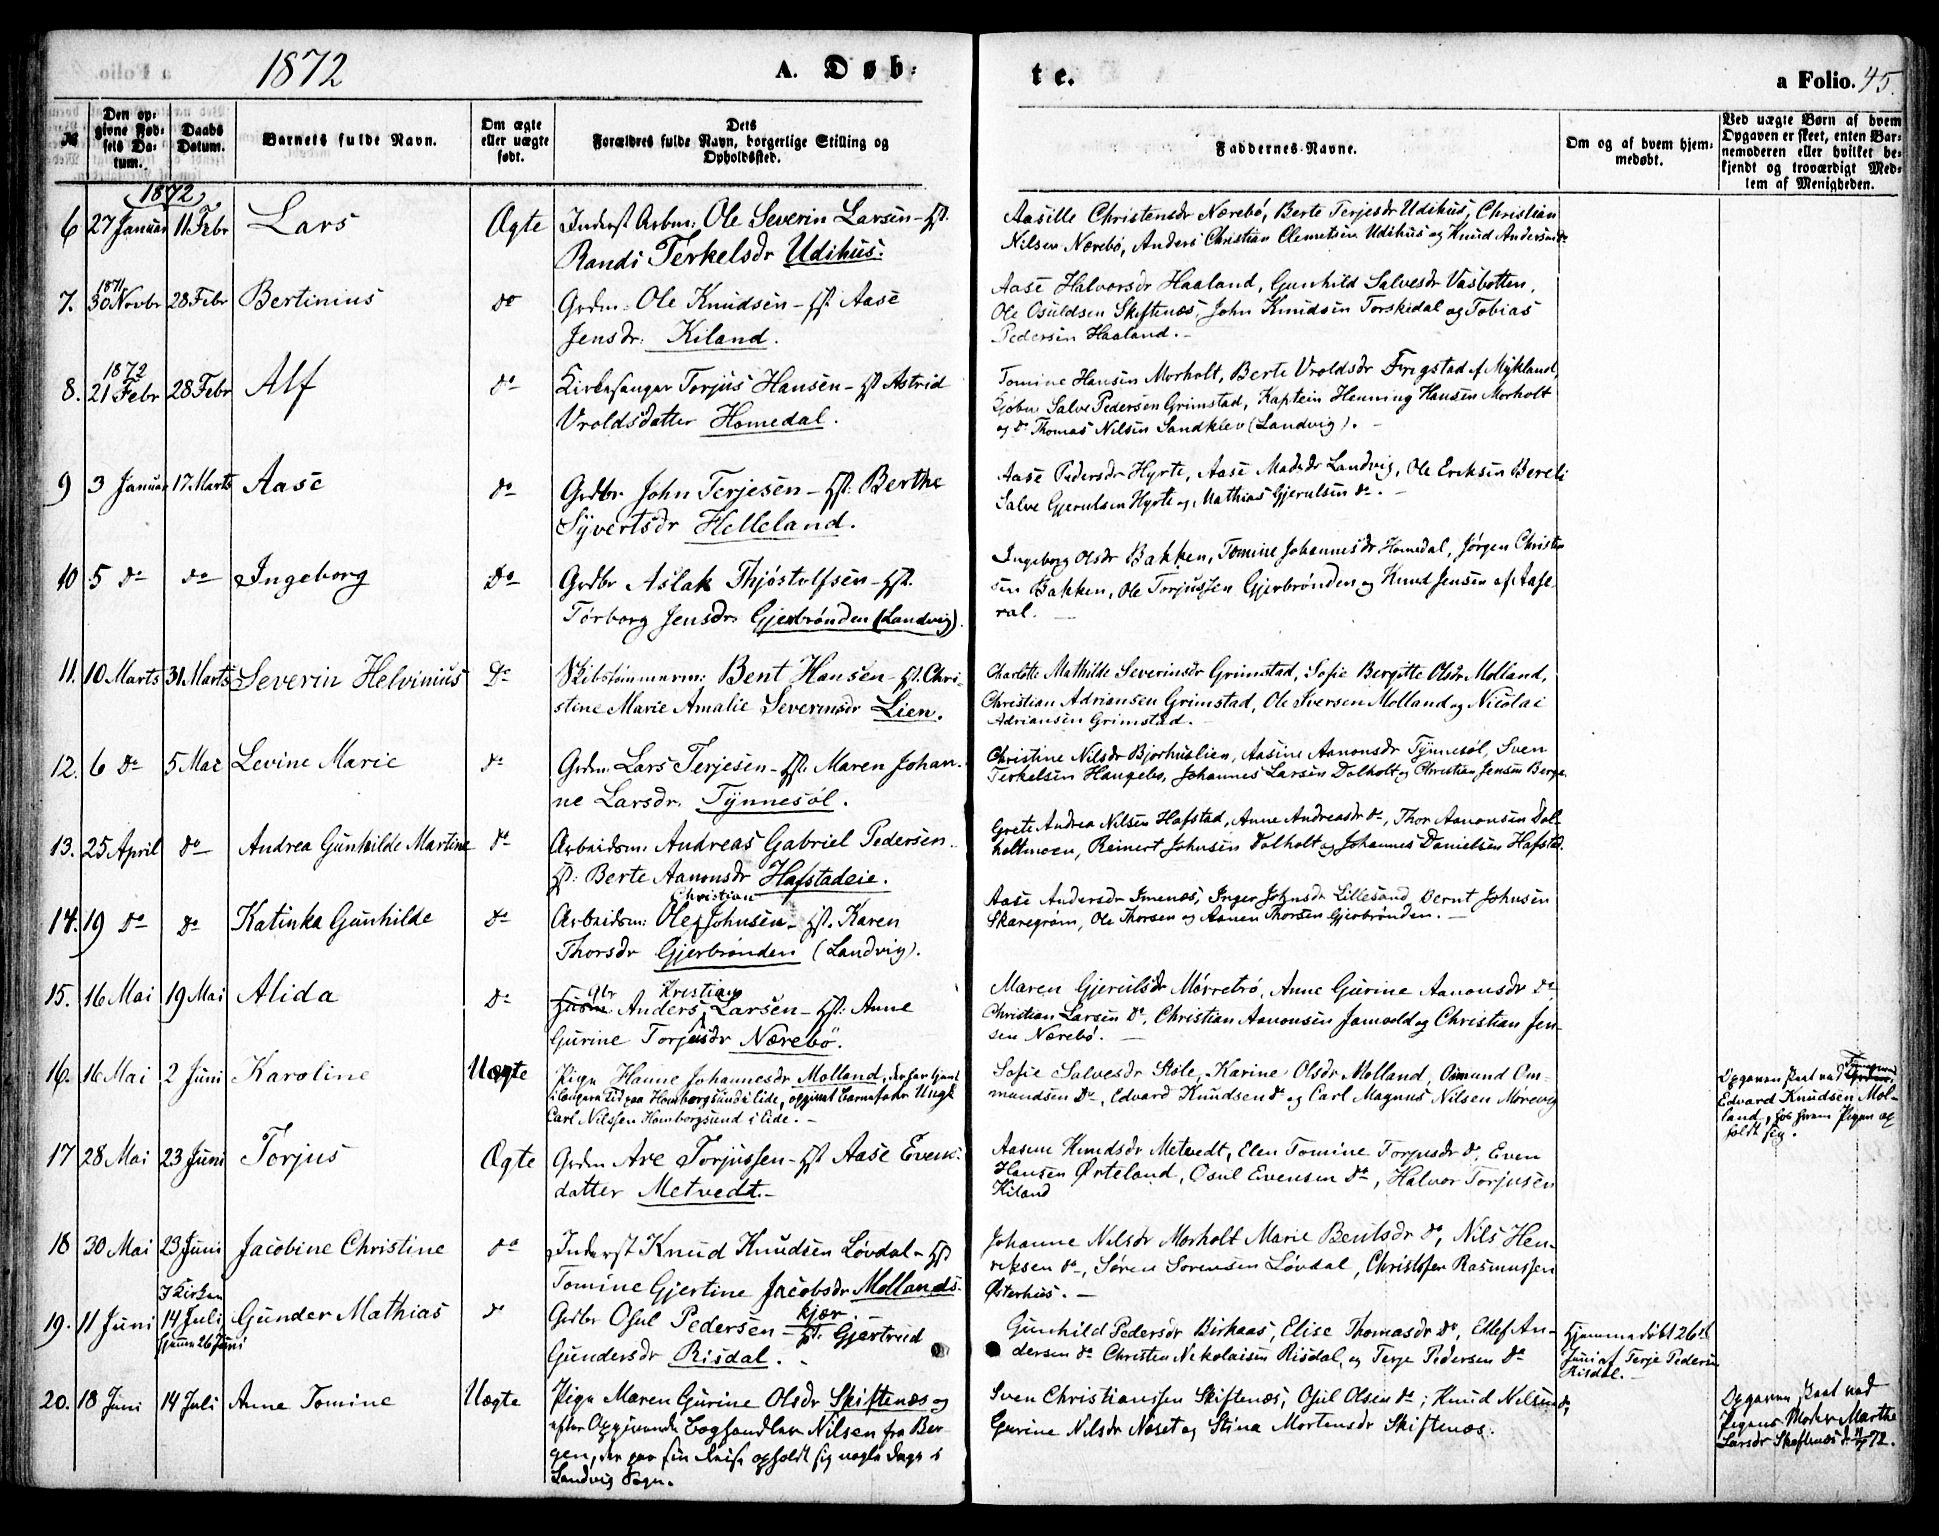 1872
A. Døb-
te.
a Folio. 45.
№
Den op-
givne Fød-
sels Da-
tum.
Daabs
Datum.
Barnets fulde Navn.
Om ægte
eller uægte
født.
Dets
Forældres fulde Navn, borgerlige Stilling og
Opholdssted.
Faddernes Navne.
Om og af hvem hjem-
medøbt.
Ved uægte Børn af hvem
Opgaven er skeet, enten Bar-
nemoderen eller hvilket be-
kjendt og troværdigt Med-
lem af Menigheden.
1872
6 27 Januar 11 Febr Lars Ægte Inderst Arbm: Ole Severin Larsen – Hst.
Randi Terkelsdr Udihus.
Aasille Christensdr Nærebö, Berte Terjesdr Udihus, Christian
Nilsen Nærebö, Anders Christian Clemetsen Udihus og Knud Andersen do
1871
7. 30 Novbr 28 Febr Bertinius do Grdm: Ole Knudsen – Hst. Aase
Jensdr: Kiland.
Aase Halvorsdr Haaland, Gunhild Salvesdr Vasbotten,
Ole Osuldsen Skiftenæs, John Knudsen Torskedal og Tobias
Pedersen Haaland. –
1872
8. 21 Febr 28 Febr Alf do Kirkesanger Torjus Hansen – Hst Astrid
Vroldsdatter Homedal.
Tomine Hansen Morholt, Berte Vroldsdr Frigstad af Mykland,
Kjøbm Salve Pedersen Grimstad, Kaptein Henning Hansen Morholt
og do Thomas Nilsen Sandklev (Landvig). –
9 3 Januar 17 Marts Aase do Grdbr. John Terjesen – Hst: Berthe
Syvertsdr Helleland.
Aase Pedersdr Hyrte, Aase Madsdr Landvig, Ole Eriksen Bereli
Salve Gjerulsen Hyrte og Mathias Gjerulsen do. –
10 5 do do Ingeborg Do Grdbr Aslak Thjöstolfsen – Hst.
Törborg Jensdr Gjerbrönden (Landvig).
Ingeborg Olsdr Bakken, Tomine Johannesdr Homedal, Jörgen Christen
sen Bakken, Ole Torjussen Gjerbrönden og Knud Jensen af Aase
ral. –
11. 10 Marts 31 Marts Severin Helvinius Do Skibstömmerm: Bent Hansen – Hst. Chri-
stine Marie Amalie Severinsdr Lien.
Charlotte Mathilde Severinsdr Grimstad, Sofie Bergitte Olsdr Molland,
Christian Adriansen Grimstad, Ole Iversen Molland og Nicolai
Adriansen Grimstad. –
12. 6 do 5 Mai Levine Marie do Grdm. Lars Terjesen – Hst. Maren Johan-
ne Larsdr. Tynnesöl.
Christine Nilsdr Bjorhuslien, Aasine Aanonsdr Tynnesöl, Sven
Terkelsen Haugebo, Johannes Larsen Dolholt og Christian Jensen Berge
13. 25 April do Andrea Gunhilde Martine do Arbeidsm: Andreas Gabriel Pedersen
Hst: Berte Aanonsdr Hafstadeie.
Grete Andrea Nilsen Hafstad, Anne Andreasdr do, Thor Aanonsen Dol-
holtmoen, Reinert Johnsen Dolholt og Johannes Danielsen Hafstad.
Christian
14. 19 do do Katinka Gunhilde do Arbeidsm: Ole Johnsen – Hst. Karen
Thorsdr Gjerbrönden (Landvig).
Aase Andersdr Imenæs, Inger Johnsdr Lillesand, Bernt Johnsen
Skaregröm, Ole Thorsen og Aanen Thorsen Gjerbrönden. –
Kristian
15. 16 Mai 19 Mai Alida do Anders Larsen – Hst: Anne
Gurine Torjusdr Nærebö.
Maren Gjerulsdr Mörretrö, Anne Gurine Aanonsdr do
Christian Larsen do, Christian Aanonsen Jamvold og Christian Jen-
sen Nærebö. –
16. 16 Mai 2 Juni Karoline Uægte Pige Hanne Johannesdr Molland, der har tjent
i længere Tid paa Homborgsund i Eide, opgivet Barnefader Ungk
Carl Nilssen Homborgsund i Eide. –
Sofie Salvesdr Stöle, Karine Olsdr Molland, Omund Om-
mundsen do, Edvard Knudsen do og Carl Magnus Nilsen Morevig
Opgaven skeet ved
Edvard Knudsen Mol-
land, hos hvem Pigen op
holdt sig.
17 28 Mai 23 Juni Torjus Ægte Grdm Are Torjussen – Hst Aase Evens-
datter Metvedt. –
Aasine Knudsdr Metvedt, Elen Tomine Torjusdr do, Even
Hansen Örteland, Osul Evensen do, Halvor Torjusen
Kiland
18 30 Mai 23 Juni Jacobine Christine do Inderst Knud Knudsen Lövdal – Hst
Tomine Gjertine Jacobsdr Mollands-
kjær
Johanne Nilsdr Morholt Marie Bentsdr do, Nils Hen-
riksen do, Sören Sorensen Lövdal, Christofer Rasmussen
Österhus. –
I Kirken
19. 11 Juni 14 Juli Gunder Mathias do Grdbr Osul Pedersen – Hst. Gjertrud
hjemme 26 Juni
Gundersdr Risdal. –
Gunhild Pedersdr Birkaas, Elise Thomasdr do, Edlef An-
dersen do Christen Nikolaisen Risdal, og Terje Pedersen do
Hjemmedöbt 26de
Juni af Terje Pedersen
Risdal. –
20. 18 Juni 14 Juli Anne Tomine Uægte Pige Maren Gurine Olsdr Skiftenæs og
efter Opgivende Boghandler Nilsen fra Ber-
gen, der paa sin Reise opholdt sig nogle Dage i
Landvig Sogn.
Sven Christianssen Skiftenæs, Osul Olsen do; Knud Nilsen do,
Gurine Nilsdr Næset og Stina Mortensdr Skiftenæs.
Opgaven skeet ved
Pigens Moder Marthe
Larsdr Skiftenæs d. 11/7 72.